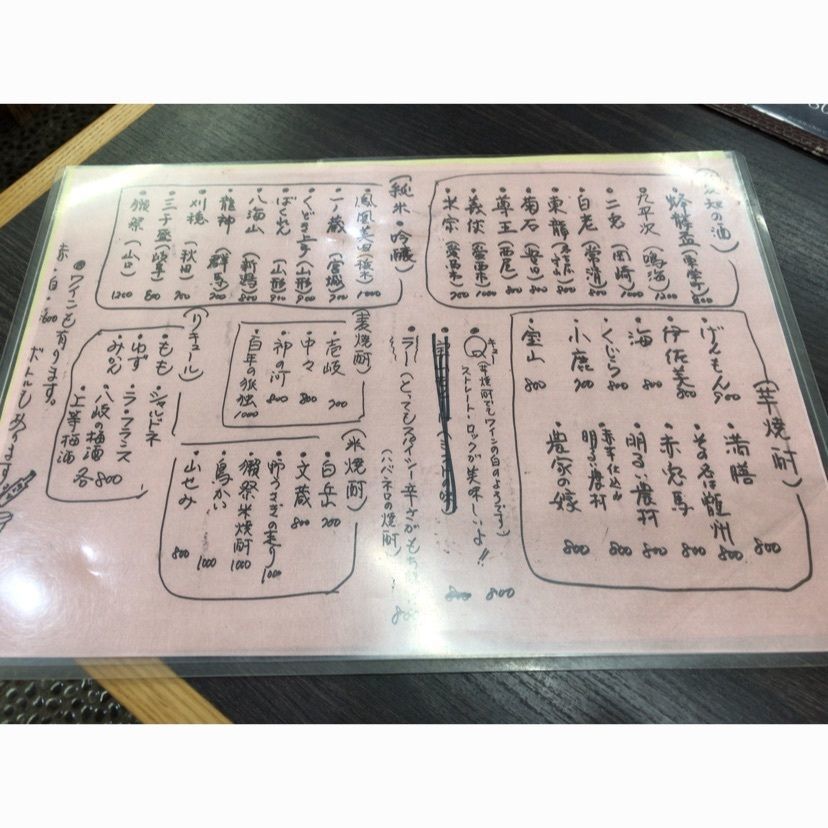 (愛知の酒)
・蓬莱盃(東栄)800
・九平次(鳴海)1200
・二兎(岡崎)1000
・白老(常滑)800
・東龍(名古屋)800
・菊石(豊田)800
・尊王(西尾)800
・義侠(愛西市)1000
・米宗(愛西市)900
(純米・吟醸)
・鳳凰美田(栃木)1000
・一ノ蔵(宮城)900
・くどき上手(山形)900
・ばくれん(山形)900
・八海山(新潟)800
・龍神(群馬)900
・刈穂(秋田)900
・三千盛(岐阜)800
・獺祭(山口)1200
(芋焼酎)
・げんもん 900
・伊佐美 800
・海 800
・くじら 800
・小鹿 700
・宝山 800
・満膳 800
・その名は龍州 800
・赤兎馬 800
・明るい農村 800
・赤芋仕込み明るい農村 800
・農家の嫁 800
キュー
・Q(芋焼酎でもワインの白のようです)
ストレート・ロックが美味しいよ!! 800
・ラー(とってもスパイシー辛さがもち
(ハバネロの焼酎)
(麦焼酎)
・壱岐 700
・中々 800
・神の河 800
・百年の孤独 1000
(米焼酎)
・白岳 700
・文蔵 800
・野うさぎの走り 1000
・獺祭米焼酎 1000
・鳥かい 1000
・山せみ 800
(リキュール)
・もも
・ゆず
・みかん
・シャルドネ
・ラ・フランス
・八岐の梅酒
・上等梅酒
各800
◎ワインも有ります。
赤・白・ 800 ボトルもあります。